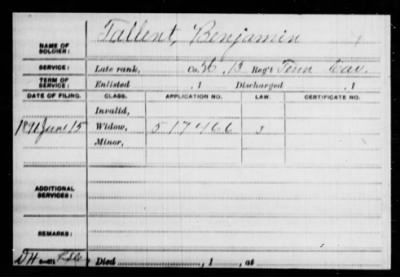 NAME OF SOLDIER: Tallent, Benjamin
SERVICE: Late rank, Co. 13 Reg't Tenn Cav.
TERM OF SERVICE: Enlisted , 1 Discharged , 1
DATE OF FILING. CLASS. APPLICATION NO. LAW. CERTIFICATE NO.
Invalid,
1891 June 15 Widow, 517466 3
Minor,
ADDITIONAL SERVICES:
REMARKS:
Died , 1 , at